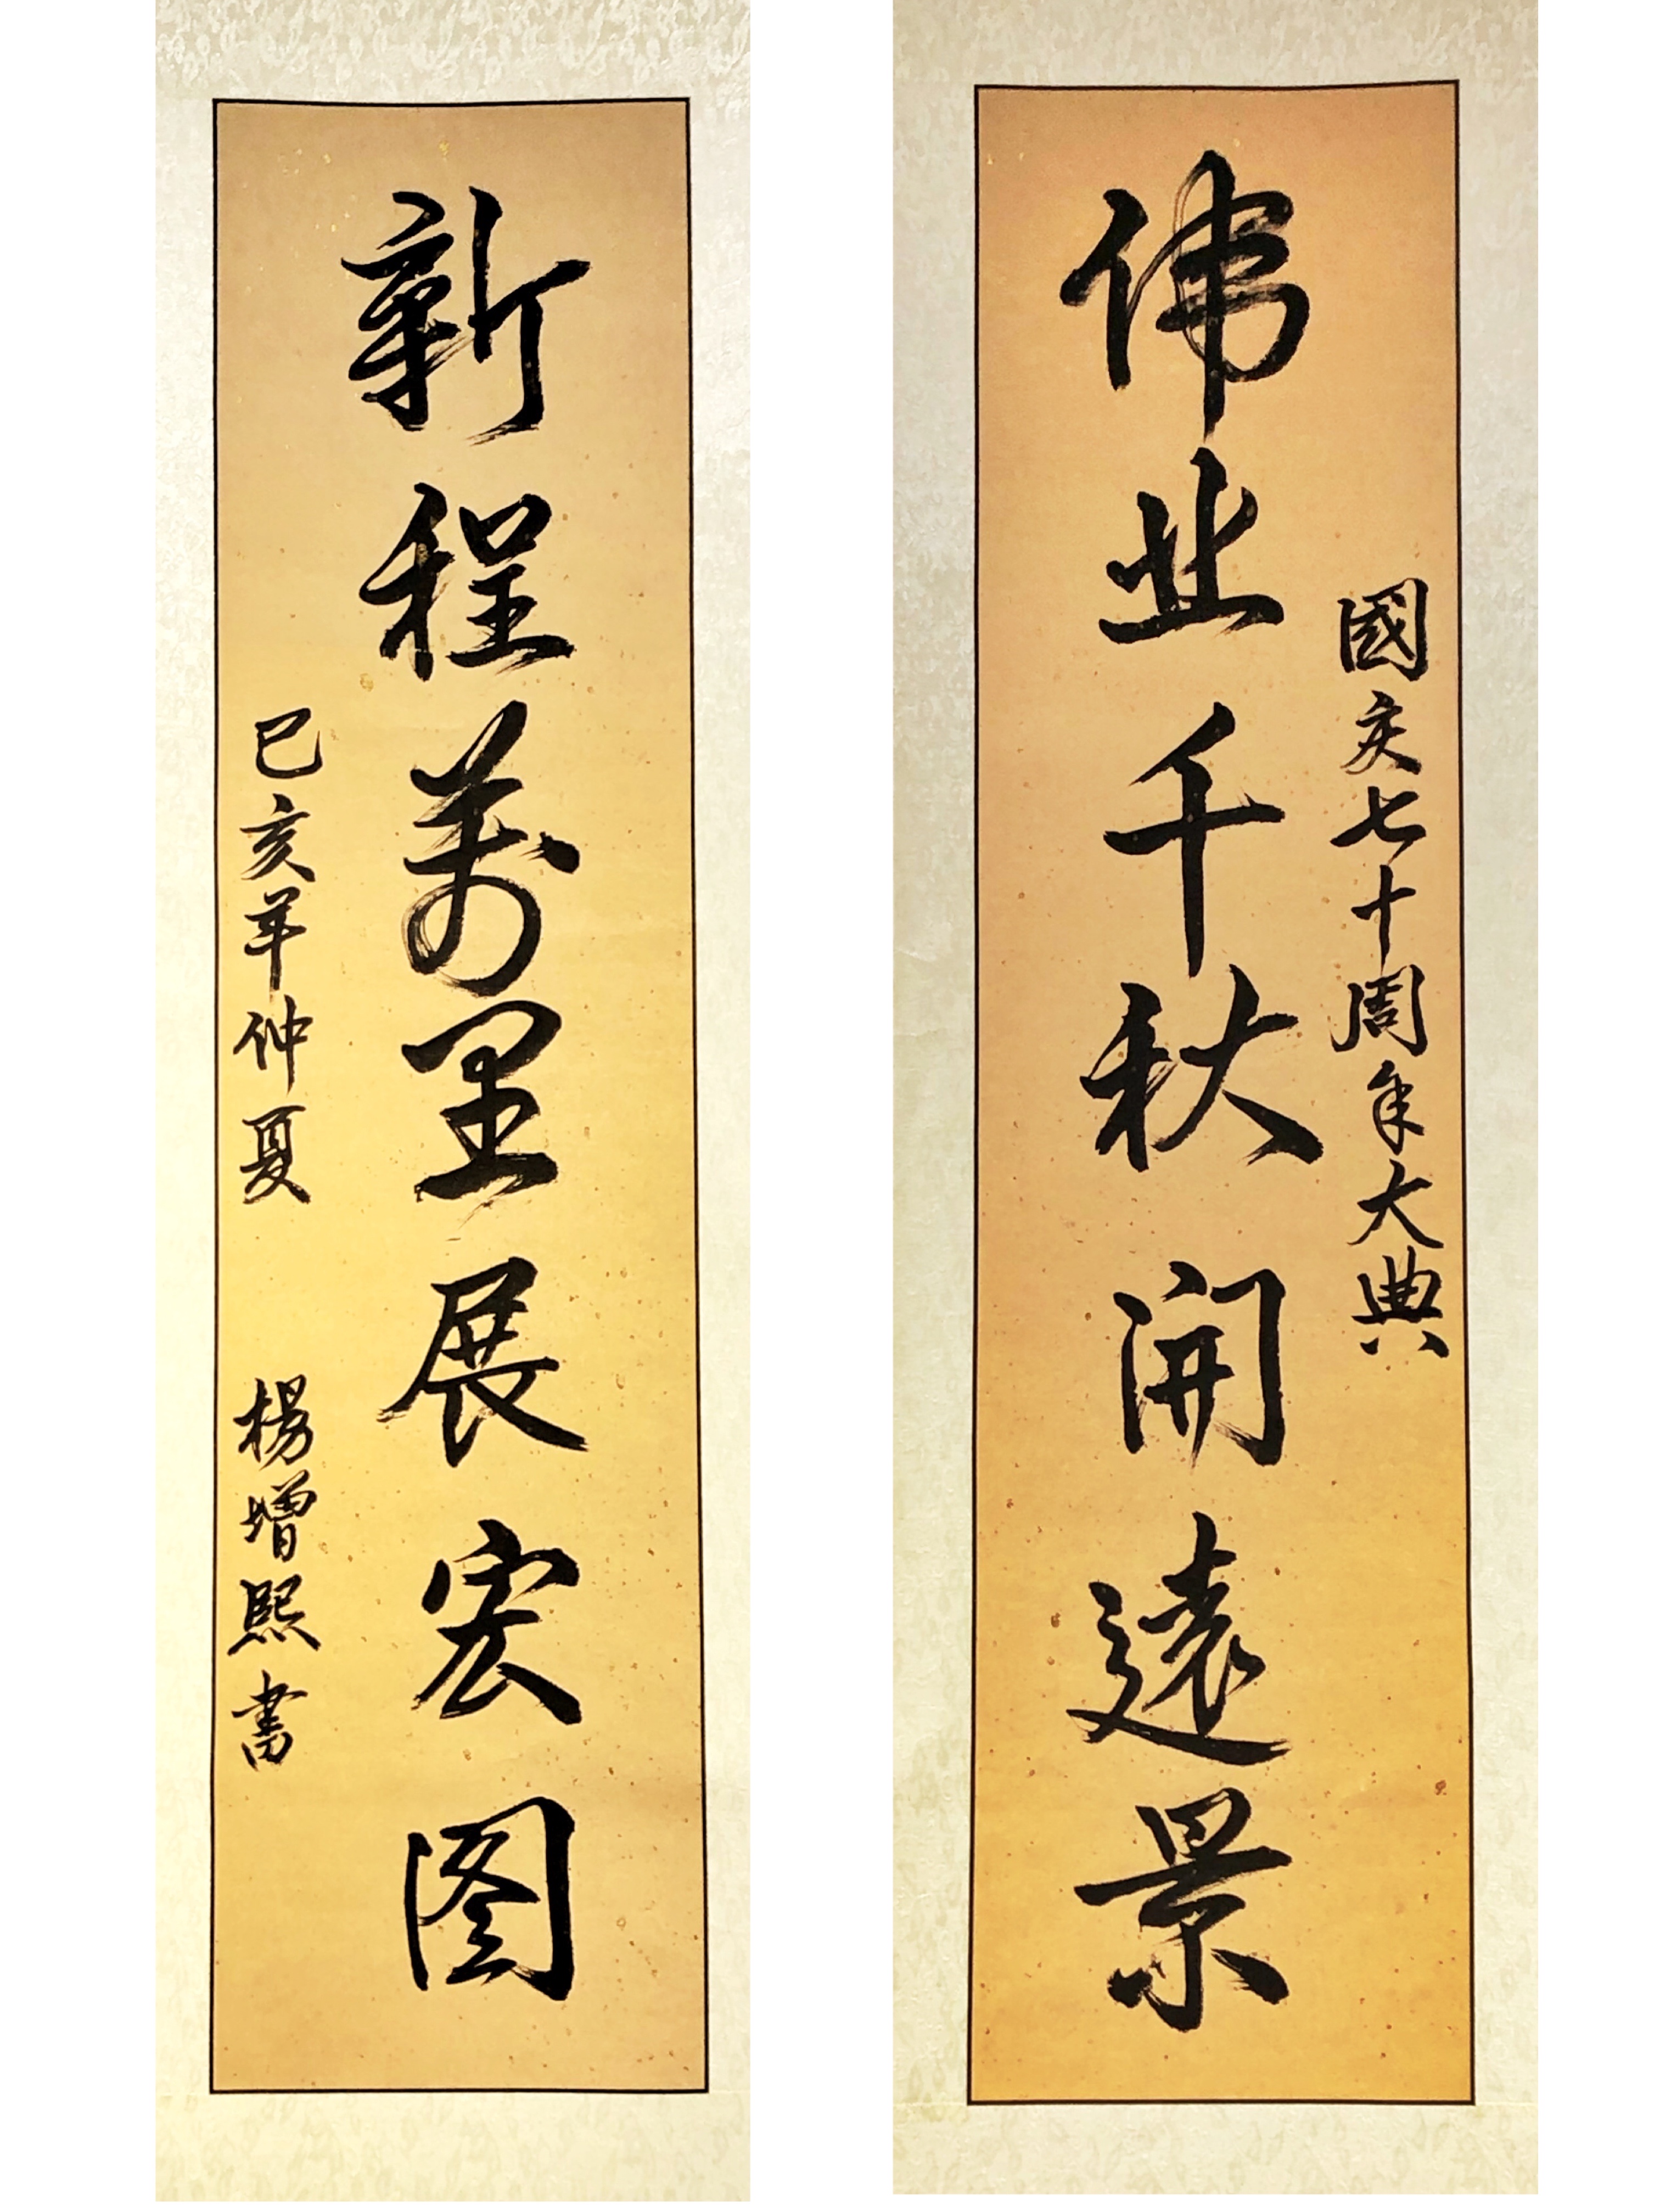 國庆七十周年大典
伟业千秋開遠景
新程萬里展宏图
己亥年仲夏 楊增熙書